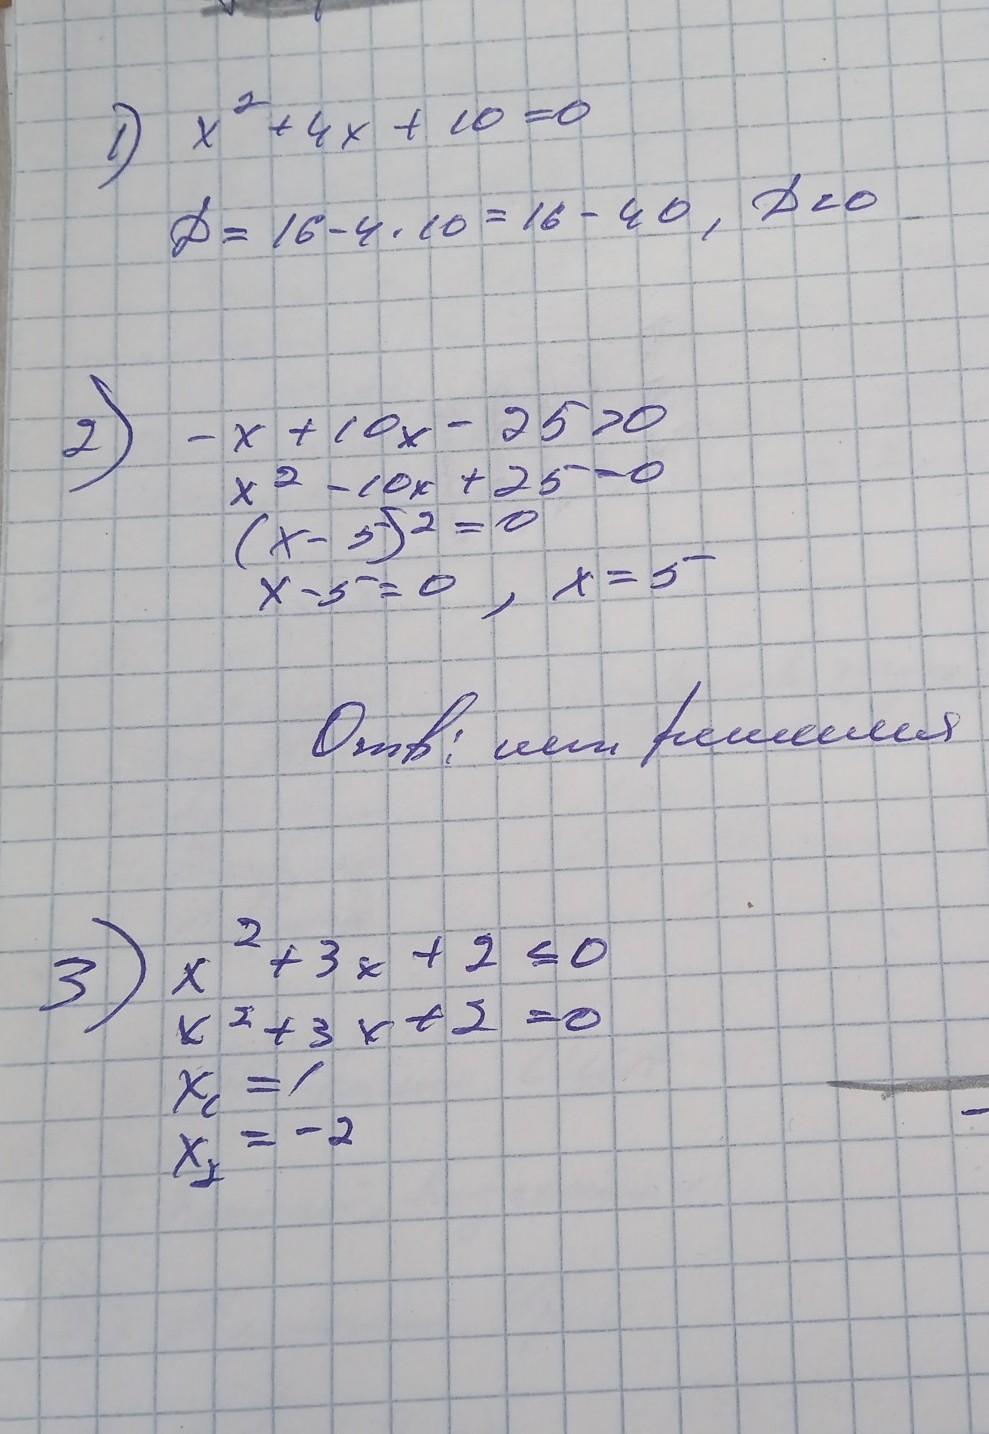 1) x² + 4x + 10 = 0
D = 16 - 4 · 10 = 16 - 40, D < 0
2) - x + 10x - 25 > 0
x² - 10x + 25 = 0
(x - 5)² = 0
x - 5 = 0, x = 5
Отв: нет решения
3) x² + 3x + 2 ≤ 0
x² + 3x + 2 = 0
x₁ = 1
x₂ = -2